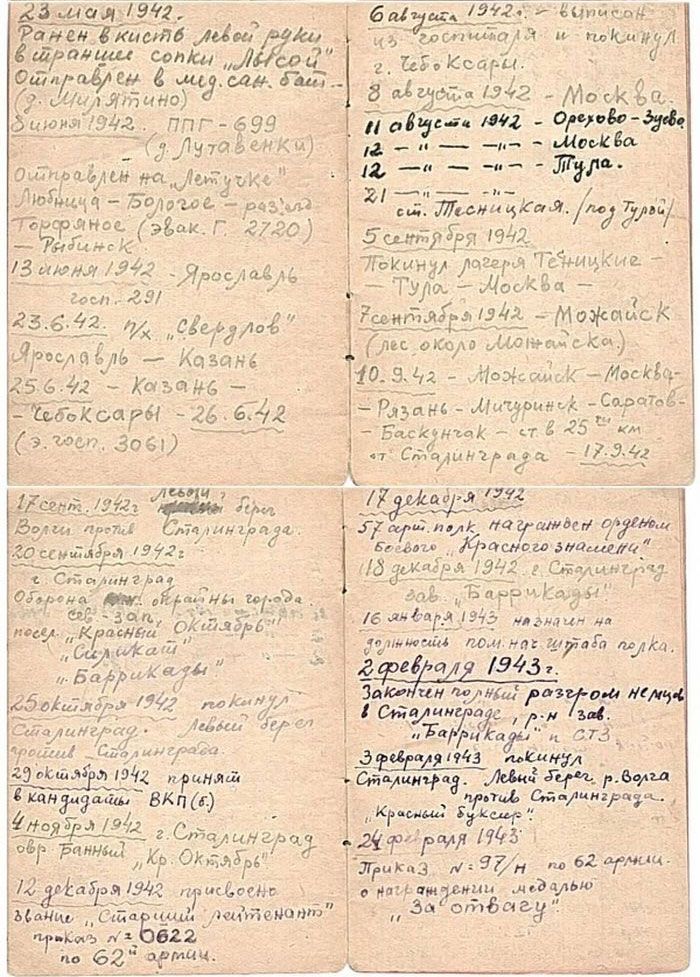 23 мая 1942.
Ранен в кисть левой руки
в траншее сопки „Лысой"
Отправлен в мед. сан. бат –
(д. Мирятино)
8 июня 1942. ППГ – 699
(д. Лутавенки)
Отправлен на „Летучке"
Любница – Бологое – раз'езд
Торфяное (эвак. Г. 2720)
– Рыбинск
13 июня 1942 – Ярославль
госп. 291
23.6.42. п/х „Свердлов"
Ярославль – Казань
25.6.42 – Казань –
– Чебоксары – 26.6.42
(э. госп. 3061)
6 августа 1942 г. – выписан
из госпиталя и покинул
г. Чебоксары.
8 августа 1942 – Москва.
11 августа 1942 – Орехово-Зуево
12 –"– –"– – Москва
12 –"– –"– – Тула.
21 –"– –"–
ст. Тесницкая. /под Тулой/
5 сентября 1942
Покинул лагеря Тесницкие –
– Тула – Москва –
7 сентября 1942 – Можайск
(лес около Можайска)
10.9.42 – Можайск – Москва –
– Рязань – Мичуринск – Саратов –
– Баскунчак – ст. в 25 ти км
от Сталинграда – 17.9.42
17 сент. 1942 г левый берег
Волги против Сталинграда.
20 сентября 1942 г
г. Сталинград
Оборона окраины города.
сев – зап.
посел. „Красный Октябрь"
„Силикат"
„Баррикады"
25 октября 1942 покинул
Сталинград. Левый берег
против Сталинграда.
29 октября 1942 принят
в кандидаты ВКП(б.)
4 ноября 1942 г. Сталинград
овр. Банный „Кр. Октябрь"
12 декабря 1942 присвоено
звание „Старший лейтенант"
приказ № 0622
по 62 й армии.
17 декабря 1942
57 арт. полк награжден орденом
Боевого „Красного знамени"
18 декабря 1942. г. Сталинград
зав. „Баррикады"
16 января 1943 назначен на
должность пом. нач. штаба полка.
2 февраля 1943 г.
Закончен полный разгром немцев
в Сталинграде, р-н зав.
„Баррикады" и СТЗ
3 февраля 1943 покинул
Сталинград. Левый берег р. Волга
против Сталинграда.
„Красный буксир".
24 февраля 1943
Приказ № 97/н по 62 армии.
о награждении медалью
„За отвагу".